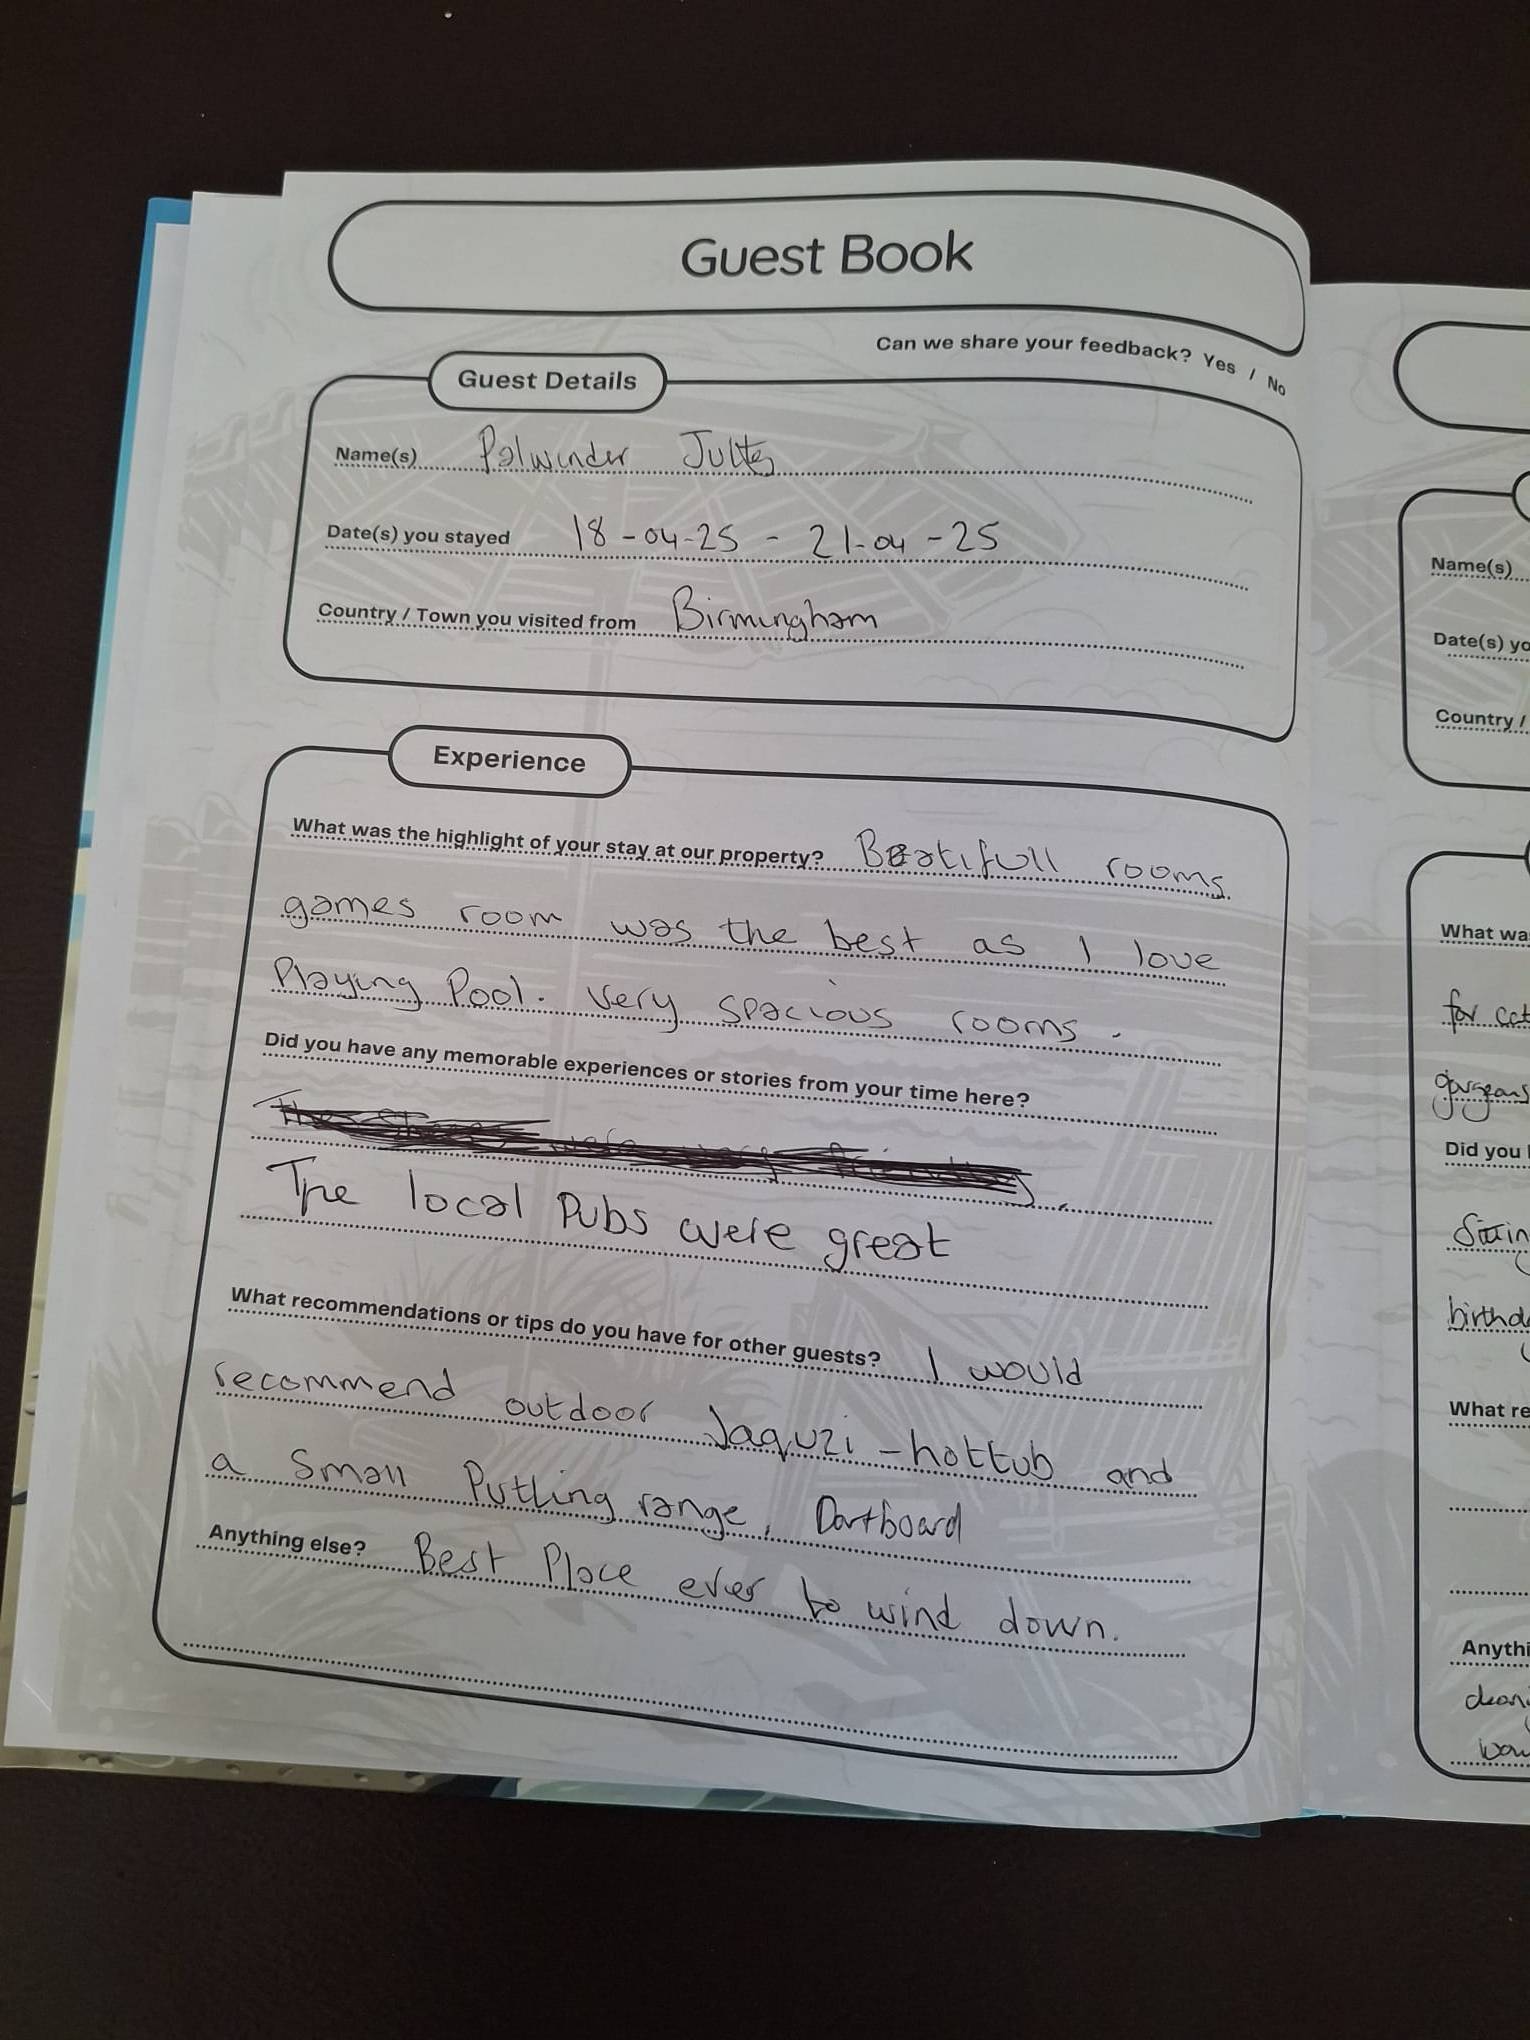 Guest Book
Can we share your feedback? Yes / No
Guest Details
Name(s) Palwinder
Date(s) you stayed 18-04-25 - 21-04-25
Country / Town you visited from Birmingham
Experience
What was the highlight of your stay at our property? Beatifull rooms
games room was the best as I love
Playing Pool. very spacious rooms.
Did you have any memorable experiences or stories from your time here?
The local Pubs were great
What recommendations or tips do you have for other guests? I would
recommend outdoor Jaquzi - hottub and
a small Putling range, Dartboard
Anything else? Best Place ever to wind down.
Name(s)
Date(s) yo
Country /
What wa
for
Did you
birthd
What re
Anythi